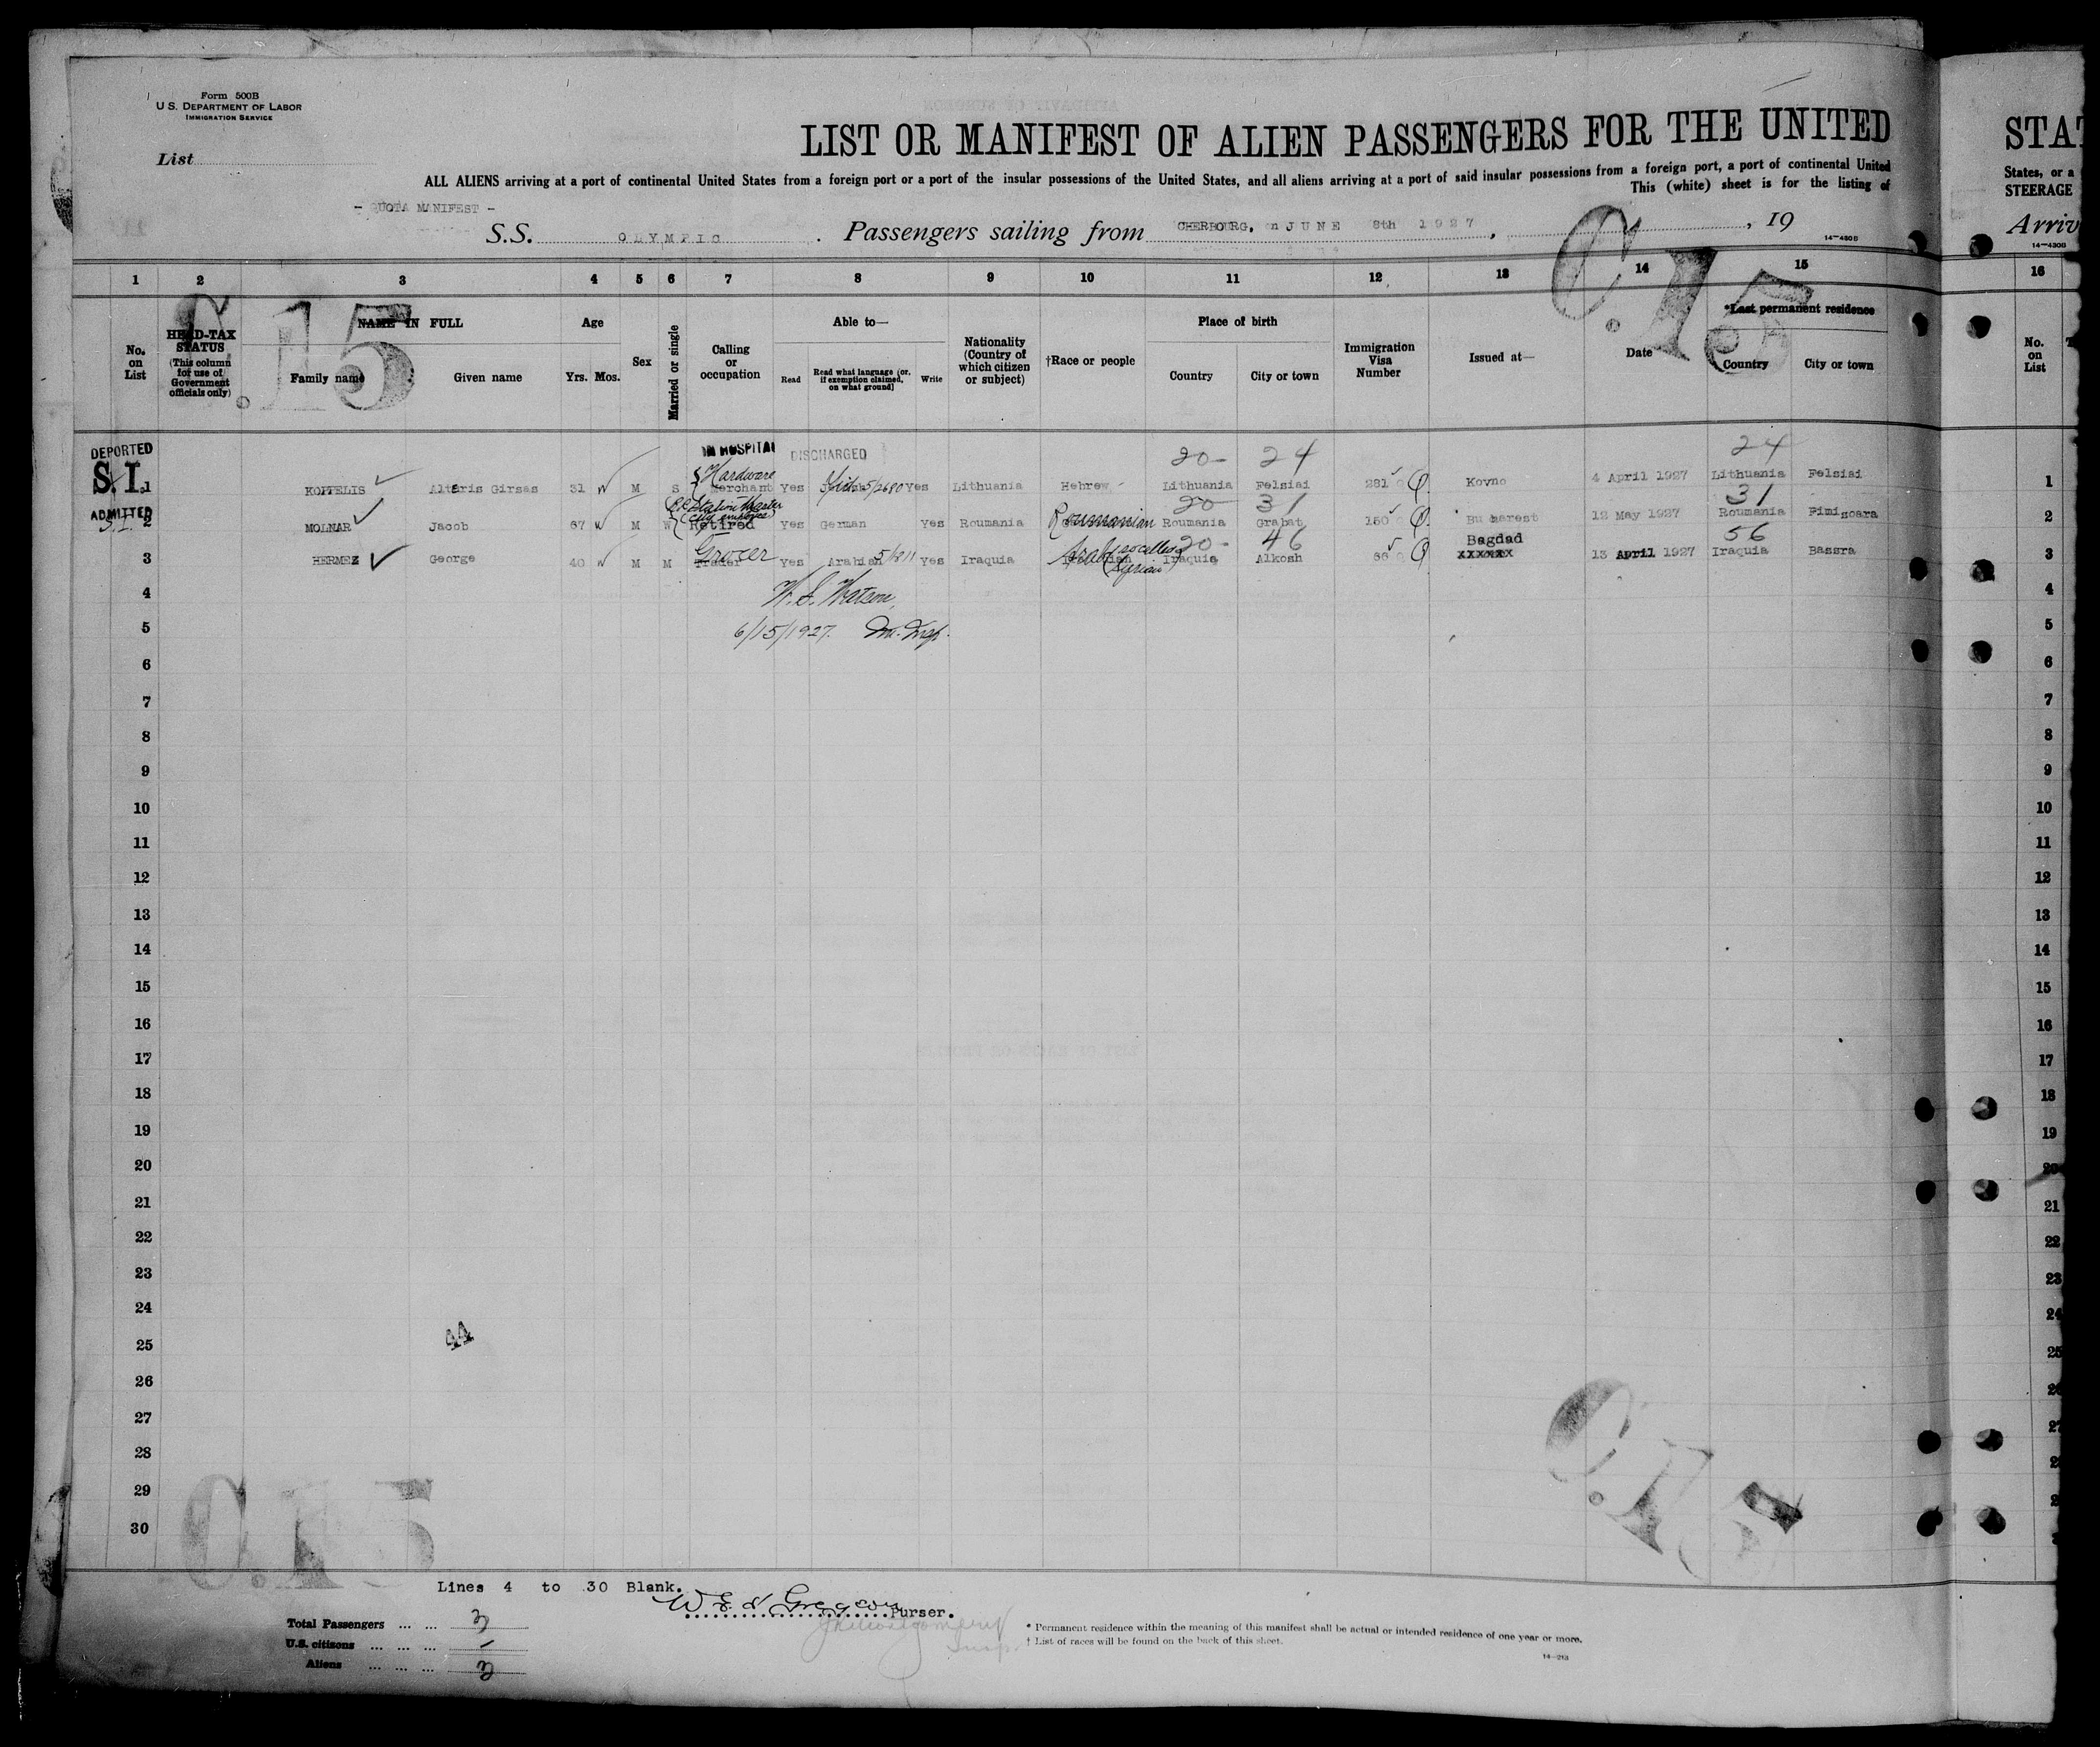 Form 500B
U S. DEPARTMENT OF LABOR
IMMIGRATION SERVICE
List
LIST OR MANIFEST OF ALIEN PASSENGERS FOR THE UNITED
STAT
ALL ALIENS arriving at a port of continental United States from a foreign port or a port of the insular possessions of the United States, and all aliens arriving at a port of said insular possessions from a foreign port, a port of continental United
States, or a
This (white) sheet is for the listing of
STEERAGE
- QUOTA MANIFEST -
S.S. OLYMPIC . Passengers sailing from CHERBOURG, on JUNE 8th 1927 , , 19
Arriv
14-430B
14-430B
1 2 3 4 5 6 7 8 9 10 11 12 13 14 15 16
C.15
C.15
No. on List
HEAD-TAX STATUS
(This column for use of Government officials only)
NAME IN FULL
Family name
Given name
Age
Yrs. Mos.
Sex
Married or single
Calling or occupation
Able to—
Read
Read what language (or, if exemption claimed, on what ground)
Write
Nationality (Country of which citizen or subject)
†Race or people
Place of birth
Country
City or town
Immigration Visa Number
Issued at—
Date
*Last permanent residence
Country
City or town
No. on List
DEPORTED
IN HOSPITAL
DISCHARGED
20- 24 24
Hardware
S.I. 1 KOPPELIS Altaris Girsas 31 W M S Merchant Yes 5/2680 Yes Lithuania Hebrew Lithuania Felsiai 281 Kovno 4 April 1927 Lithuania Felsiai 1
ADMITTED
Station Master
(City employee)
20 31 31
S.I. 2 MOLNAR Jacob 67 W M W Retired Yes German Yes Roumania Roumanian Roumania Grabat 150 Bucharest 12 May 1927 Roumania Timisoara 2
Grocer 5/811 20- 46 Bagdad 56
3 HERMEZ George 40 W M M Trader Yes Arabian Yes Iraquia Iraquia Alkosh 66 xxxxxx 13 April 1927 Iraquia Bassra 3
(so called Syrian)
4 W. S. Watson, 4
5 6/15/1927. Im. Insp. 5
6 6
7 7
8 8
9 9
10 10
11 11
12 12
13 13
14 14
15 15
16 16
17 17
18 18
19 19
20 20
21 21
22 22
23 23
24 24
44
25 25
26
27
28
29
30
C.15
C.15
Lines 4 to 30 Blank.
Purser.
Total Passengers ... ... 3
U.S. citizens ... ... ... -
Aliens ... ... ... 3
* Permanent residence within the meaning of this manifest shall be actual or intended residence of one year or more.
† List of races will be found on the back of this sheet.
14-213